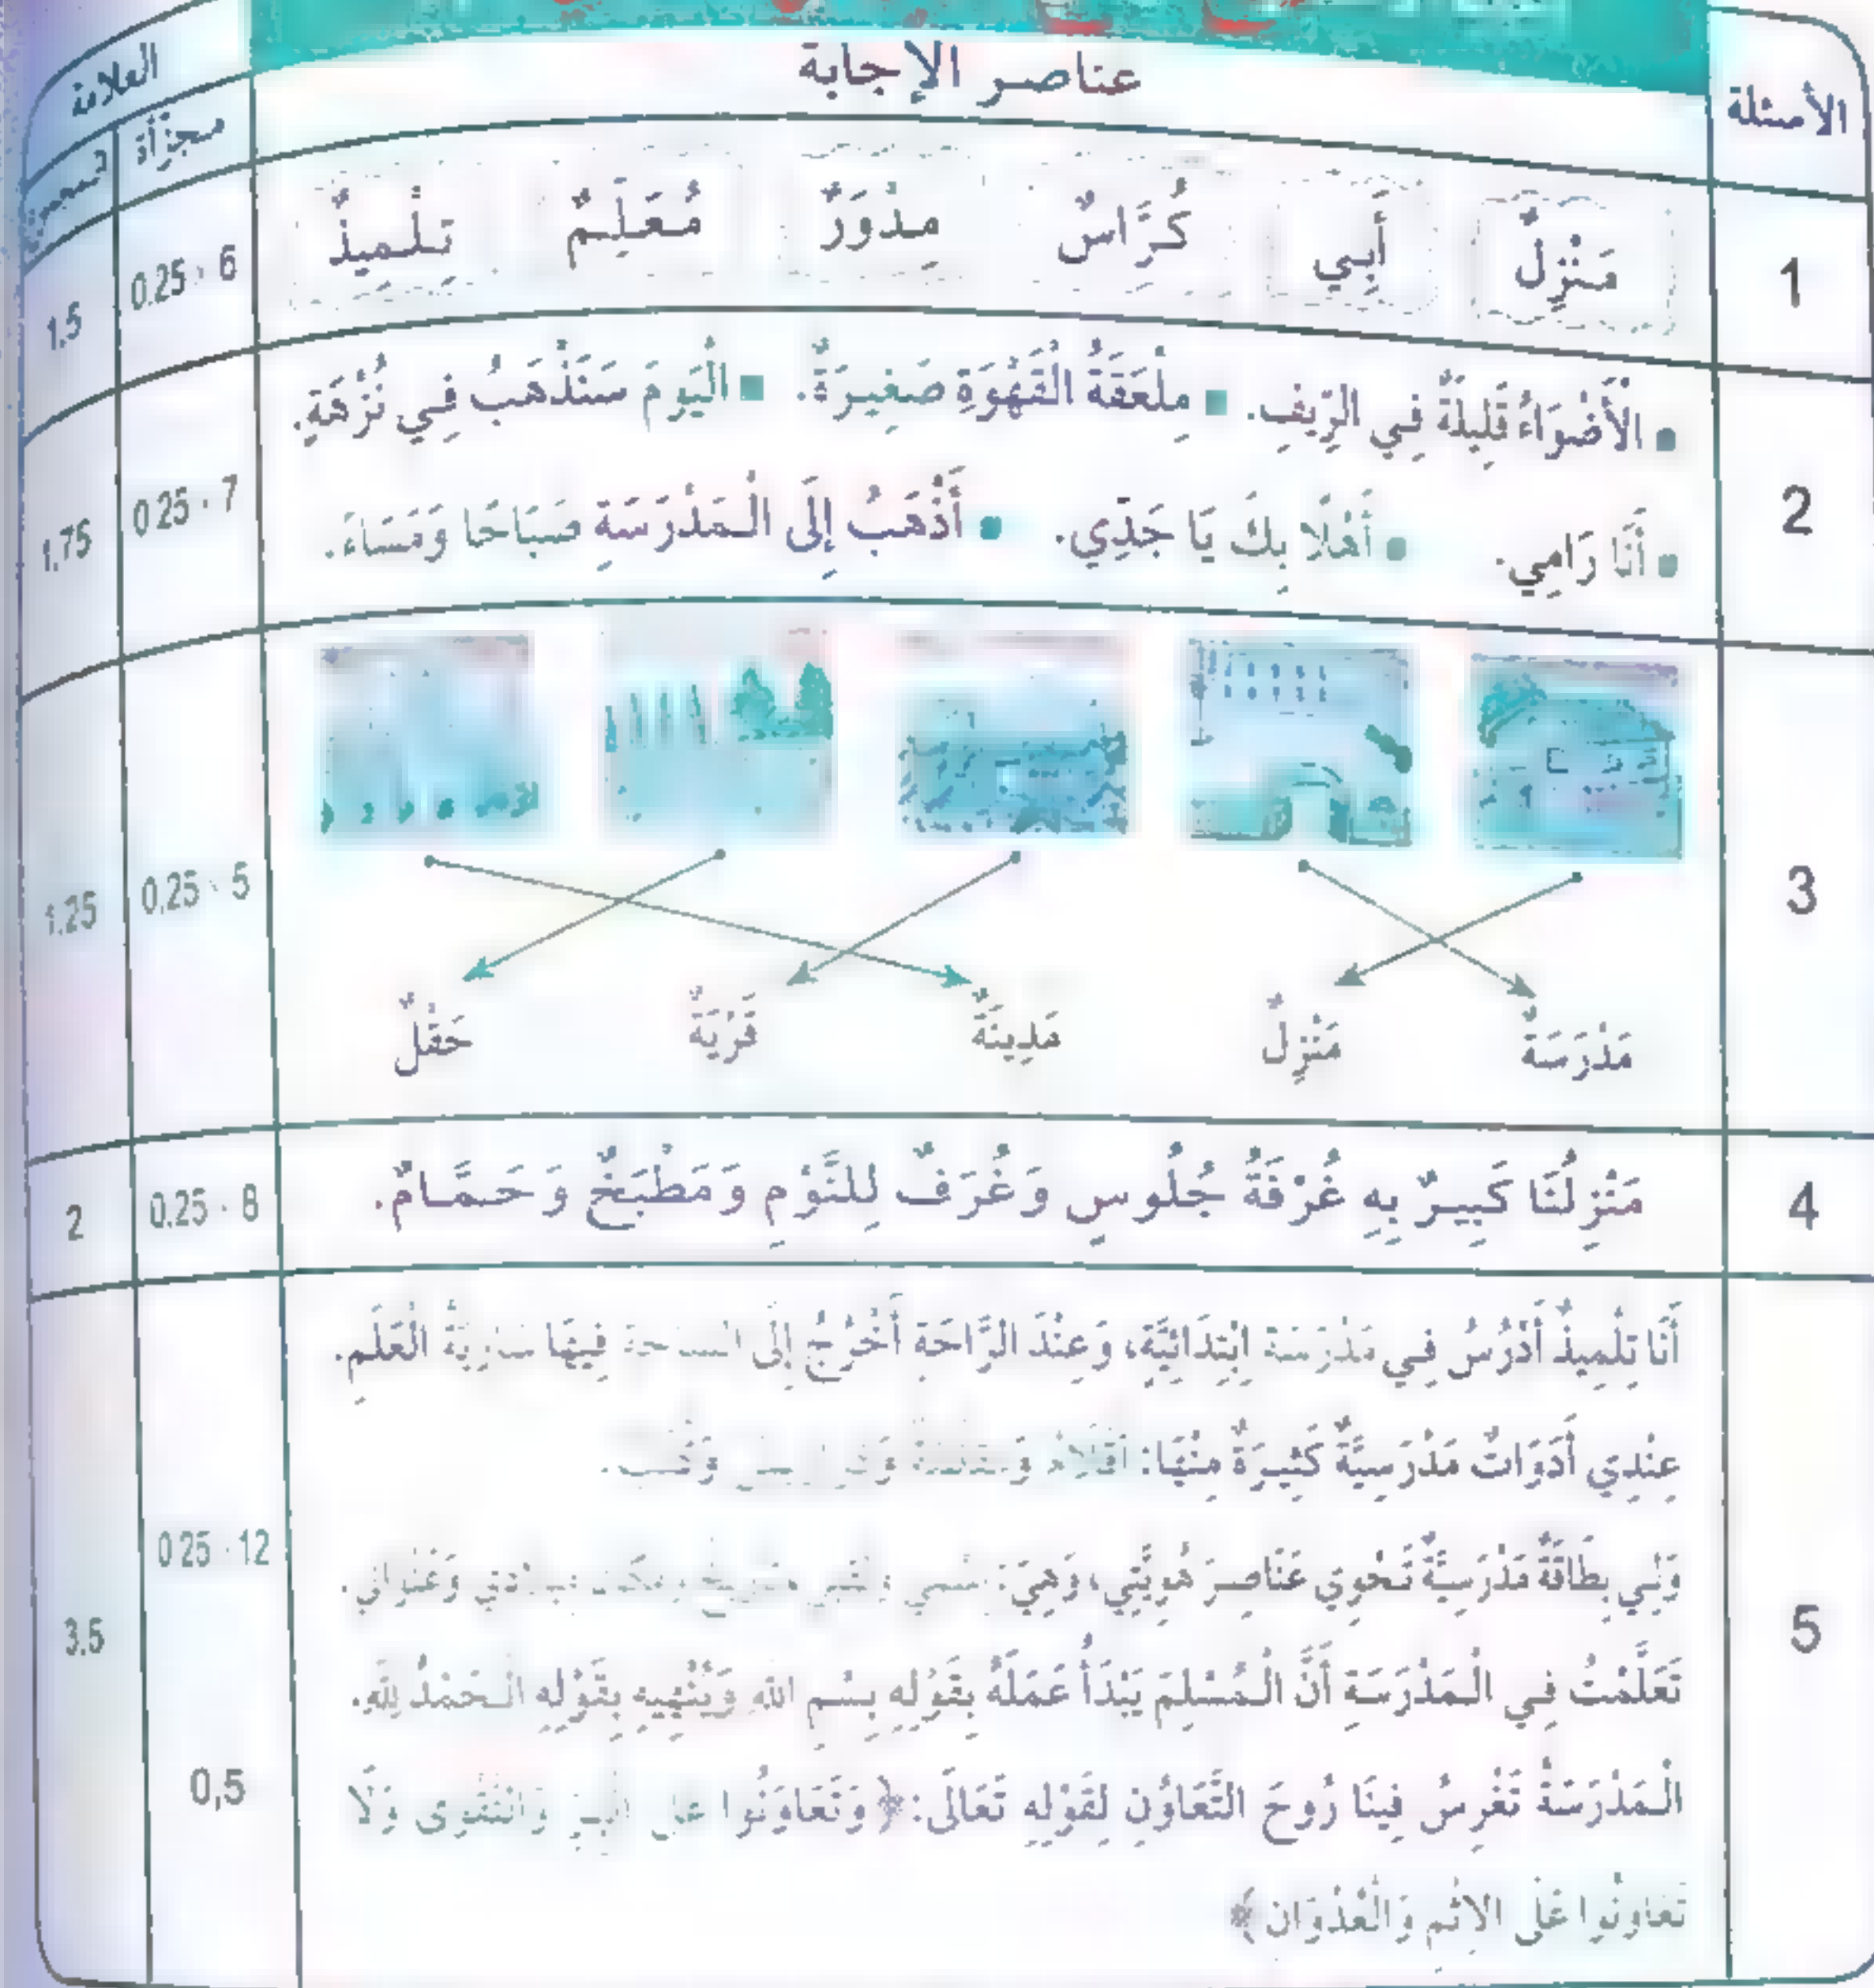 الأسئلة
عناصر الإجابة
العلامة
مجزأة
1
مَنْزِلٌ أَبِي كُرَّاسٌ مِدْوَرٌ مُعَلِّمٌ تِلْمِيذٌ
6 × 0.25
1.5
2
الْأَضْوَاءُ قَلِيلَةٌ فِي الرِّيفِ. ▪ مِلْعَقَةُ الْقَهْوَةِ صَغِيرَةٌ. ▪ الْيَوْمَ سَنَذْهَبُ فِي نُزْهَةٍ.
▪ أَنَا رَامِي. ▪ أَهْلًا بِكَ يَا جَدِّي. ▪ أَذْهَبُ إِلَى الْمَدْرَسَةِ صَبَاحًا وَمَسَاءً.
7 × 0.25
1.75
3
مَدْرَسَةٌ مَنْزِلٌ مَدِينَةٌ قَرْيَةٌ حَقْلٌ
5 × 0.25
1.25
4
مَنْزِلُنَا كَبِيرٌ بِهِ غُرْفَةُ جُلُوسٍ وَغُرَفٌ لِلنَّوْمِ وَمَطْبَخٌ وَحَمَّامٌ.
8 × 0.25
2
5
أَنَا تِلْمِيذٌ أَدْرُسُ فِي مَدْرَسَةٍ اِبْتِدَائِيَّةٍ، وَعِنْدَ الرَّاحَةِ أَخْرُجُ إِلَى الساحة فِيهَا سارية الْعَلَمِ.
عِنْدِي أَدَوَاتٌ مَدْرَسِيَّةٌ كَثِيرَةٌ مِنْهَا: أقلام
وَلِي بِطَاقَةٌ مَدْرَسِيَّةٌ تَحْوِي عَنَاصِرَ هُوِيَّتِي، وَهِيَ: وَعُنْوَانِي.
تَعَلَّمْتُ فِي الْمَدْرَسَةِ أَنَّ الْمُسْلِمَ يَبْدَأُ عَمَلَهُ بِقَوْلِهِ بِسْمِ اللهِ وَيُنْهِيهِ بِقَوْلِهِ الْحَمْدُ لِلهِ.
الْمَدْرَسَةُ تَغْرِسُ فِينَا رُوحَ التَّعَاوُنِ لِقَوْلِهِ تَعَالَى: ﴿ وَتَعَاوَنُوا على البر وَالتَّقْوَى وَلَا
تَعَاوَنُوا عَلَى الإِثْمِ وَالْعُدْوَان ﴾
12 × 0.25
0,5
3.5